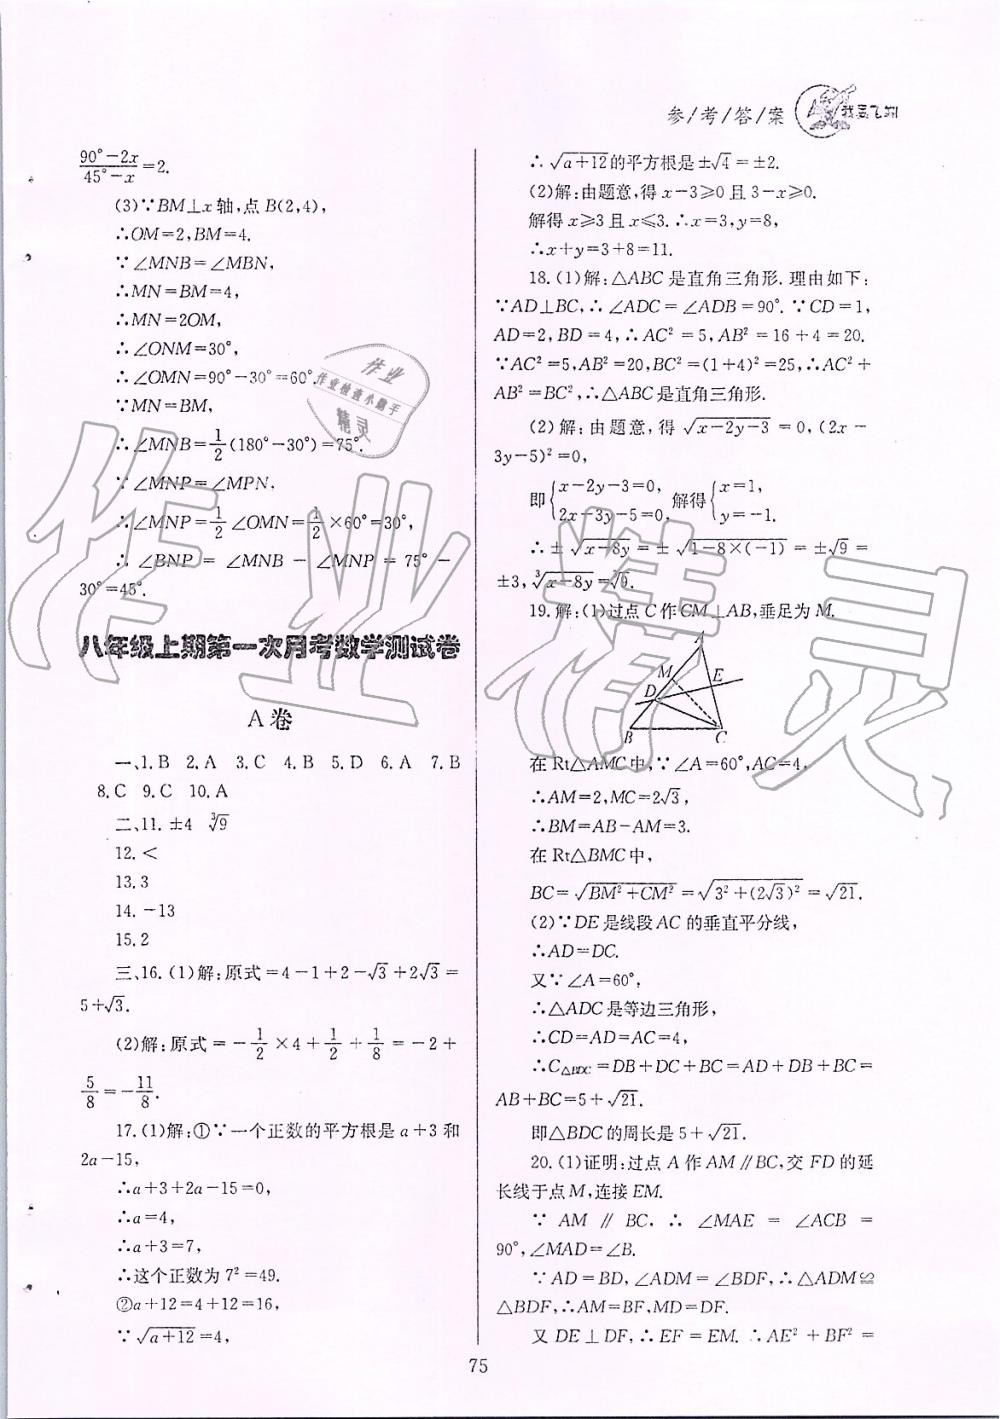 参/考/答/案
我是飞翔
90°-2x/45°-x=2.
(3)∵BM⊥x轴,点B(2,4),
∴OM=2,BM=4.
∵∠MNB=∠MBN,
∴MN=BM=4,
∴MN=2OM,
∴∠ONM=30°,
∴∠OMN=90°-30°=60°.
∵MN=BM,
∴∠MNB=1/2(180°-30°)=75°.
∵∠MNP=∠MPN.
∴∠MNP=1/2∠OMN=1/2×60°=30°,
∴∠BNP=∠MNB-∠MNP=75°-
30°=45°.
八年级上期第一次月考数学测试卷
A卷
一、1.B 2.A 3.C 4.B 5.D 6.A 7.B
8.C 9.C 10.A
二、11.±4 ∛9
12.<
13.3
14.-13
15.2
三、16.(1)解:原式=4-1+2-√3+2√3=
5+√3.
(2)解:原式=-1/2×4+1/2+1/8=-2+
5/8=-11/8.
17.(1)解:①∵一个正数的平方根是a+3和
2a-15,
∴a+3+2a-15=0,
∴a=4,
∴a+3=7,
∴这个正数为7²=49.
②a+12=4+12=16,
∵√(a+12)=4,
∴√(a+12)的平方根是±√4=±2.
(2)解:由题意,得x-3≥0且3-x≥0.
解得x≥3且x≤3.∴x=3,y=8,
∴x+y=3+8=11.
18.(1)解:△ABC是直角三角形.理由如下:
∵AD⊥BC,∴∠ADC=∠ADB=90°.∵CD=1,
AD=2,BD=4,∴AC²=5,AB²=16+4=20.
∵AC²=5,AB²=20,BC²=(1+4)²=25,∴AC²+
AB²=BC²,∴△ABC是直角三角形.
(2)解:由题意,得√(x-2y-3)=0,(2x-
3y-5)²=0,
即{x-2y-3=0, 2x-3y-5=0, 解得{x=1, y=-1.
∴±√(x-8y)=±√(1-8×(-1))=±√9=
±3,∛(x-8y)=∛9.
19.解:(1)过点C作CM⊥AB,垂足为M.
A
M E
D
B C
在Rt△AMC中,∵∠A=60°,AC=4,
∴AM=2,MC=2√3,
∴BM=AB-AM=3.
在Rt△BMC中,
BC=√(BM²+CM²)=√(3²+(2√3)²)=√21.
(2)∵DE是线段AC的垂直平分线,
∴AD=DC.
又∵∠A=60°,
∴△ADC是等边三角形,
∴CD=AD=AC=4,
∴C△BDC=DB+DC+BC=AD+DB+BC=
AB+BC=5+√21.
即△BDC的周长是5+√21.
20.(1)证明:过点A作AM∥BC,交FD的延
长线于点M,连接EM.
∵AM∥BC,∴∠MAE=∠ACB=
90°,∠MAD=∠B.
∵AD=BD,∠ADM=∠BDF,∴△ADM≌
△BDF,∴AM=BF,MD=DF.
又DE⊥DF,∴EF=EM.∴AE²+BF²=
75
作业
作业检查小助手
精灵
作业精灵